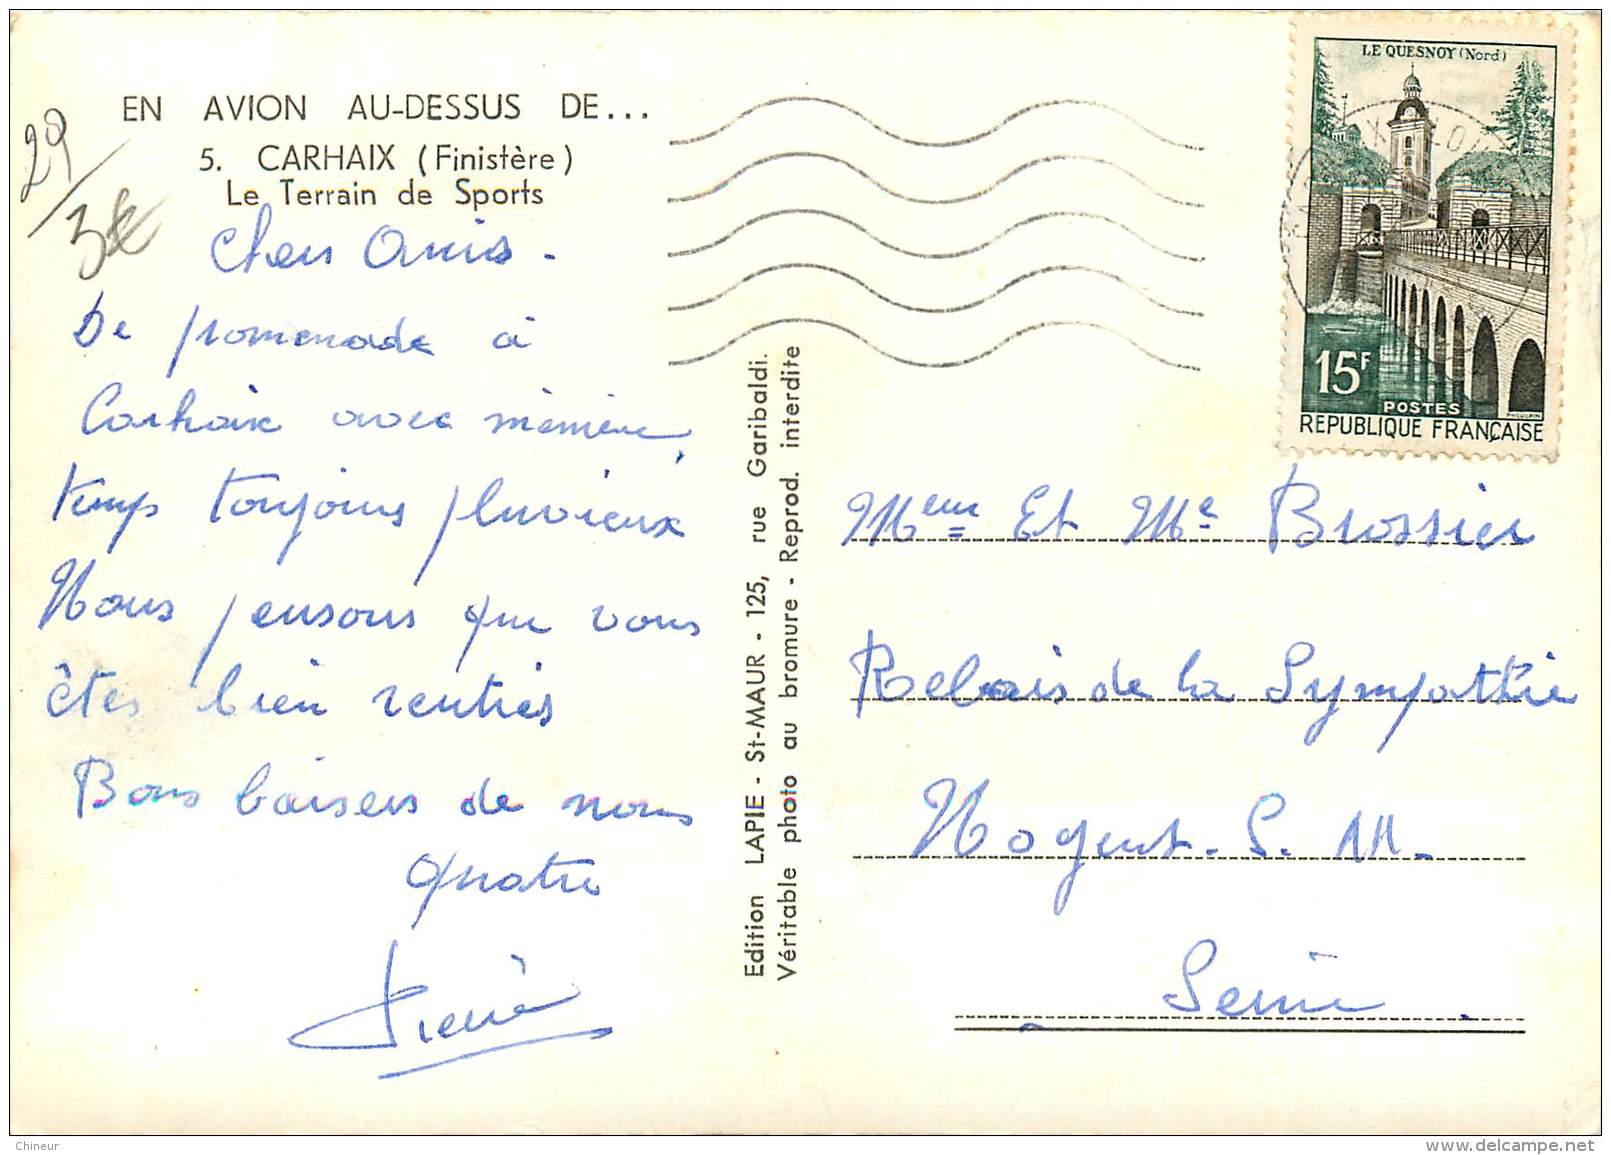 EN AVION AU-DESSUS DE...
5. CARHAIX (Finistère)
Le Terrain de Sports
29
3€
Chers Amis.
De promenade à
Carhaix avec mémère,
temps toujours pluvieux
Nous pensons que vous
êtes bien rentrés
Bons baisers de nous
quatre
Pierre
Edition LAPIE - St-MAUR - 125, rue Garibaldi.
Véritable photo au bromure - Reprod. interdite
LE QUESNOY (Nord)
15F
POSTES
REPUBLIQUE FRANÇAISE
Meur Et Me Brossier
Relais de la Sympathie
Nogent. S. M.
Seine.
Chineur
www.delcampe.net